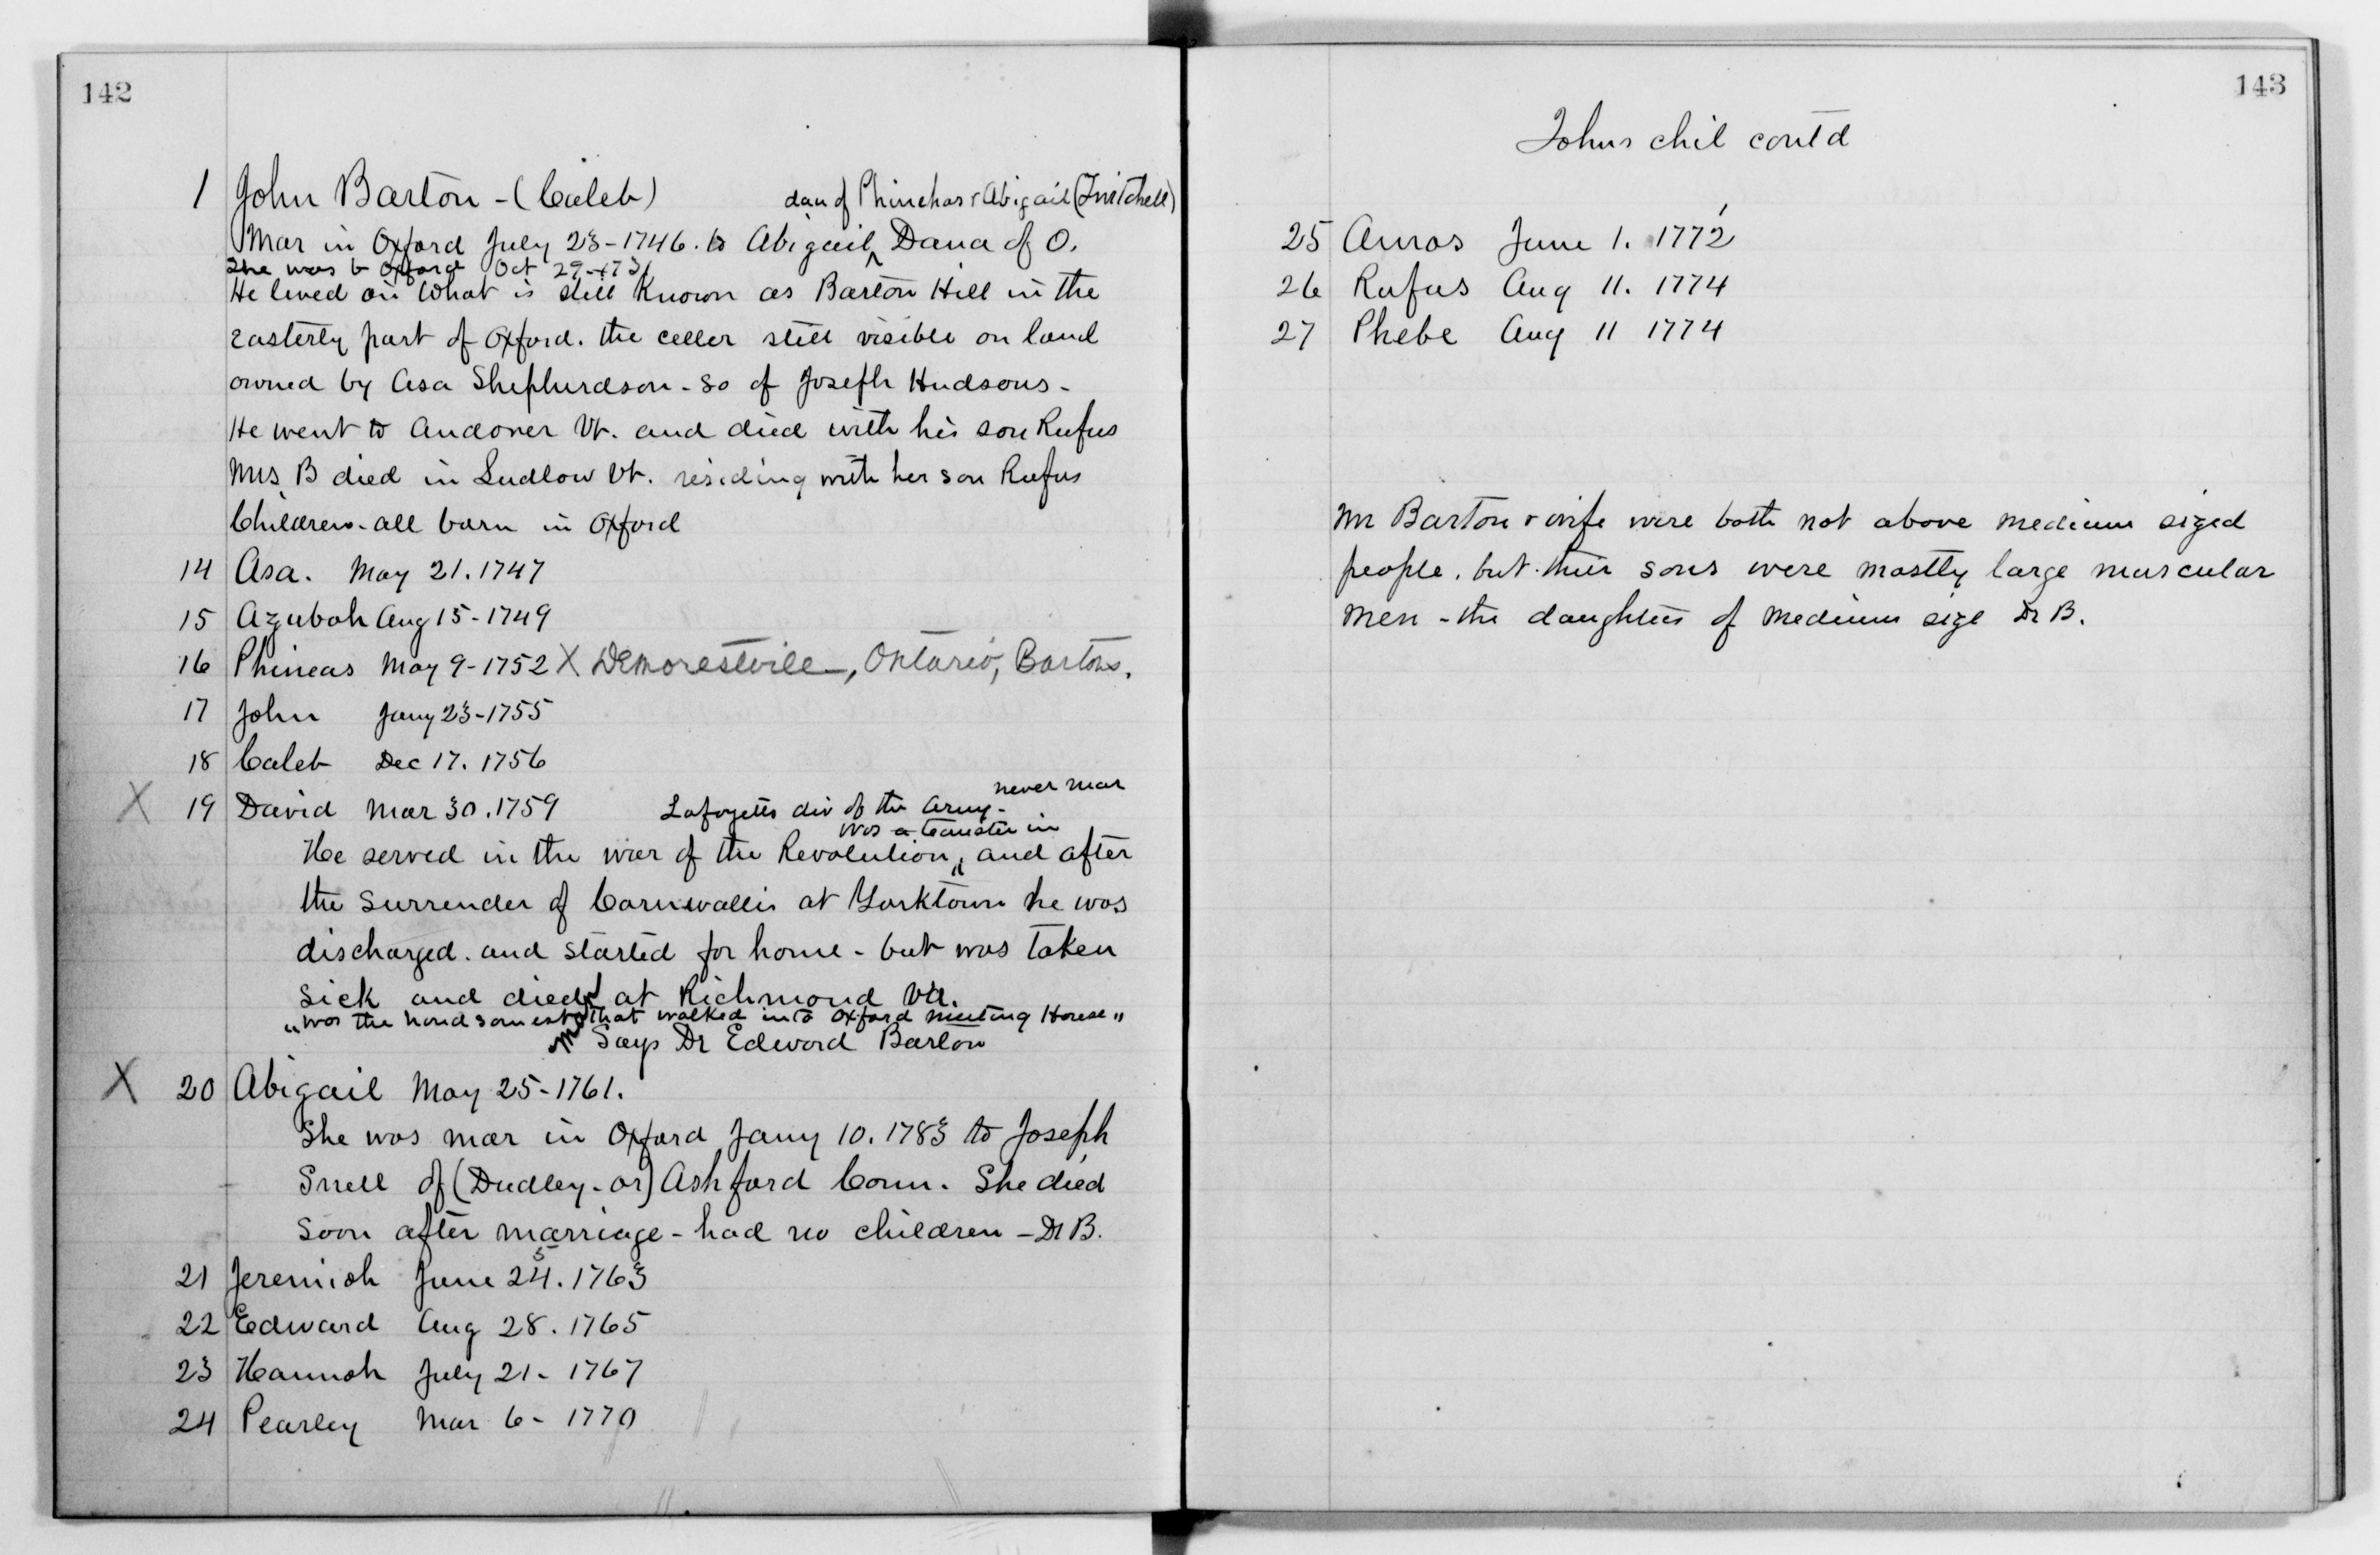 142
1 John Barton - (Caleb)
dau of Phinehas & Abigail (Twitchell)
Mar in Oxford July 23 - 1746. to Abigail ^ Dana of O.
She was b Oxford Oct 29 - 1731
He lived on what is still known as Barton Hill in the
easterly part of Oxford. the celler still visible on land
owned by Asa Shephurdson - so of Joseph Hudsons -
He went to Andover Vt. and died with his son Rufus
Mrs B died in Ludlow Vt. residing with her son Rufus
Children - all born in Oxford
14 Asa. May 21. 1747
15 Azubah Aug 15 - 1749
16 Phineas May 9 - 1752 X Demorestville, Ontario, Bartons.
17 John Jany 23 - 1755
18 Caleb Dec 17. 1756
never mar
X 19 David Mar 30. 1759 Lafayetts div of the Army -
was a teamster in
He served in the war of the Revolution, ^ and after
the surrender of Cornwallis at Yorktown he was
discharged. and started for home - but was taken
sick and died at Richmond Va.
"was the handsomest man that walked into Oxford meeting House"
Says Dr Edward Barton
X 20 Abigail May 25 - 1761.
She was mar in Oxford Jany 10. 1783 to Joseph
Snell of (Dudley - or) Ashford Conn. She died
soon after marriage - had no children - Dr B.
5
21 Jeremiah June 24. 1763
22 Edward Aug 28. 1765
23 Hannah July 21 - 1767
24 Pearley Mar 6 - 1770
143
Johns chil cont'd
25 Amos June 1. 1772
26 Rufus Aug 11. 1774
27 Phebe Aug 11 1774
Mr Barton & wife were both not above medium sized
people. but their sons were mostly large muscular
men - the daughters of medium size Dr B.